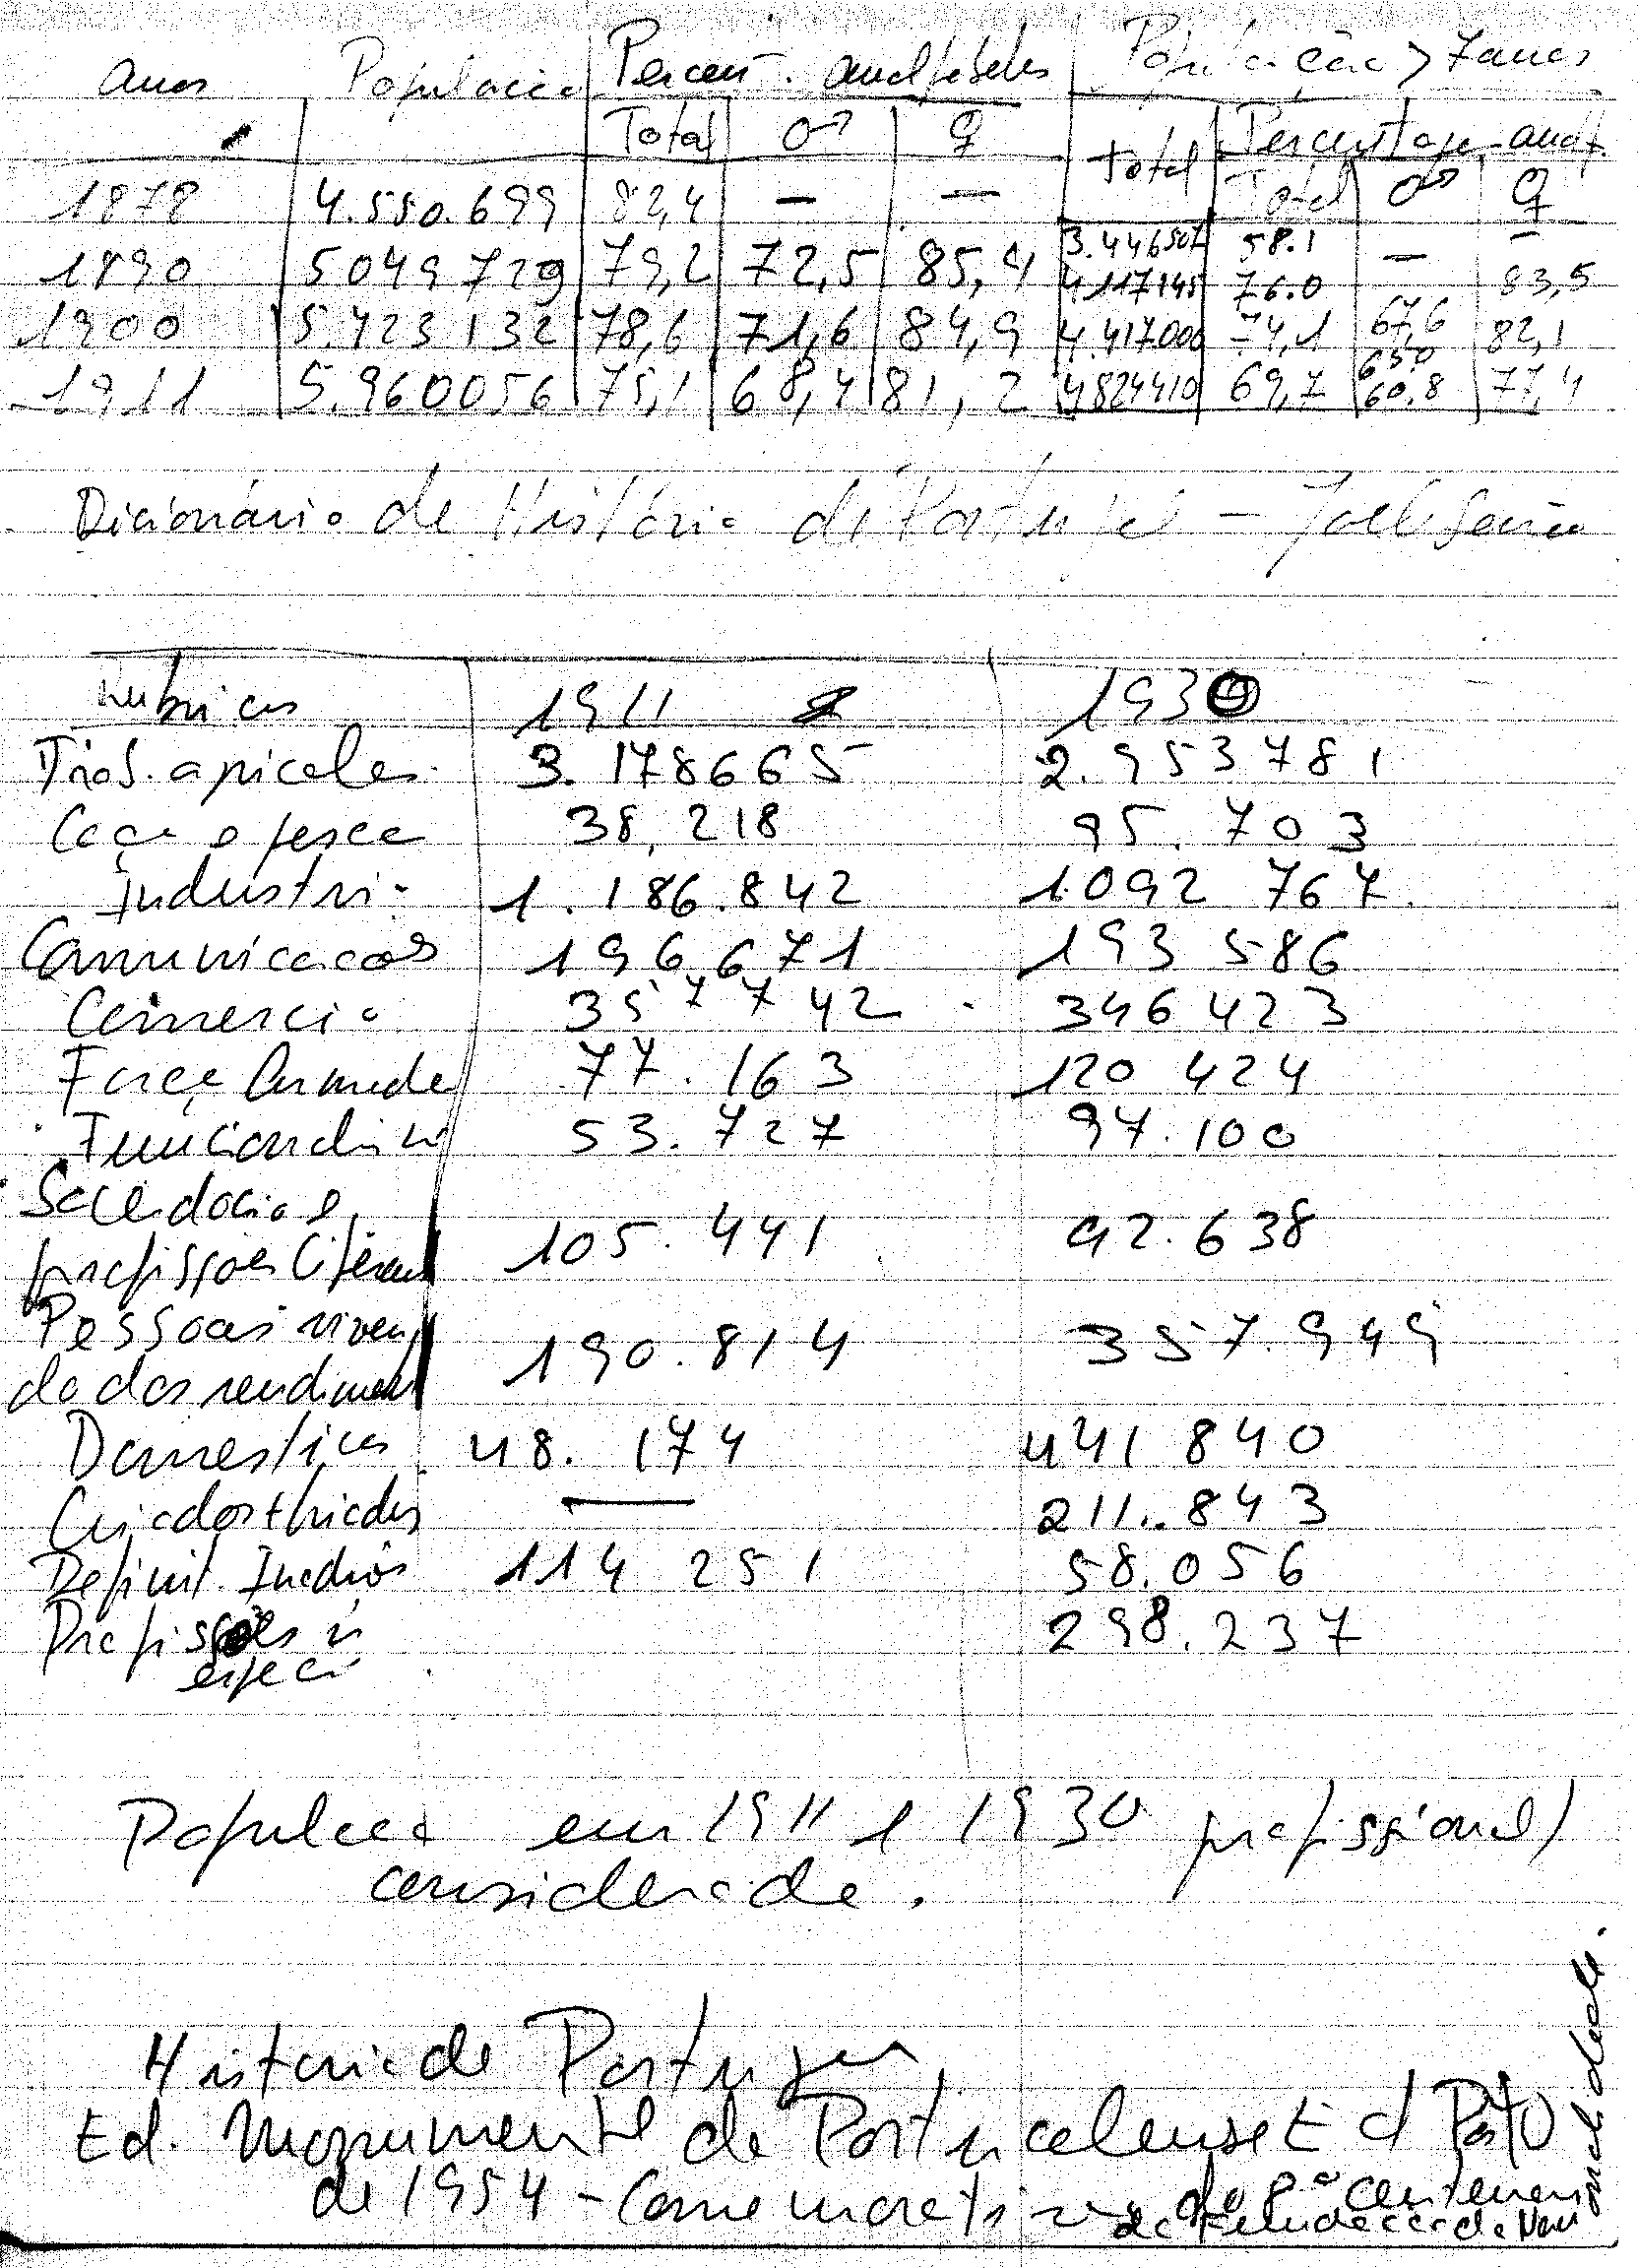 Anos População Percent. analfabetos População > 7 anos
Total ♂ ♀ Total Percentage analf.
Total ♂ ♀
1878 4.550.699 82,4 — — 3.446507 58.1 — —
1890 5049729 79,2 72,5 85,4 4117145 76.0 67,6 83,5
1900 5.423132 78,6 71,6 84,9 4.417000 74,1 65.0 82,1
1911 5.960056 75,1 68,4 81,2 4824410 69,7 60,8 77,4
Dicionário de História de Portugal — Joel Serrão
Rubricas 1911 1930
Trab. agricolas 3.178665 2.953781
Caça e pesca 38,218 95.703
Industria 1.186.842 1.092 767
Comunicacoes 196671 193 586
Comercio 357742 346423
Força Armada 77.163 120 424
Funcionalis 53.727 97.100
Sacerdocio e
profissoes liberais 105.441 92.638
Pessoas viven
do dos rendimen 190.814 357.949
Domesticos 48.174 441 840
Criados + criadas — 211.843
Definit. 114 251 58.056
Profissões n 298.237
especi
População em 1911 e 1930 profissional/
considerada.
Historia de Portugal
Ed. Monumental da Portucalense Ed Porto
de 1954 - Comemorativa do 8º Centenario
da Fundacao da Nacionalidade.